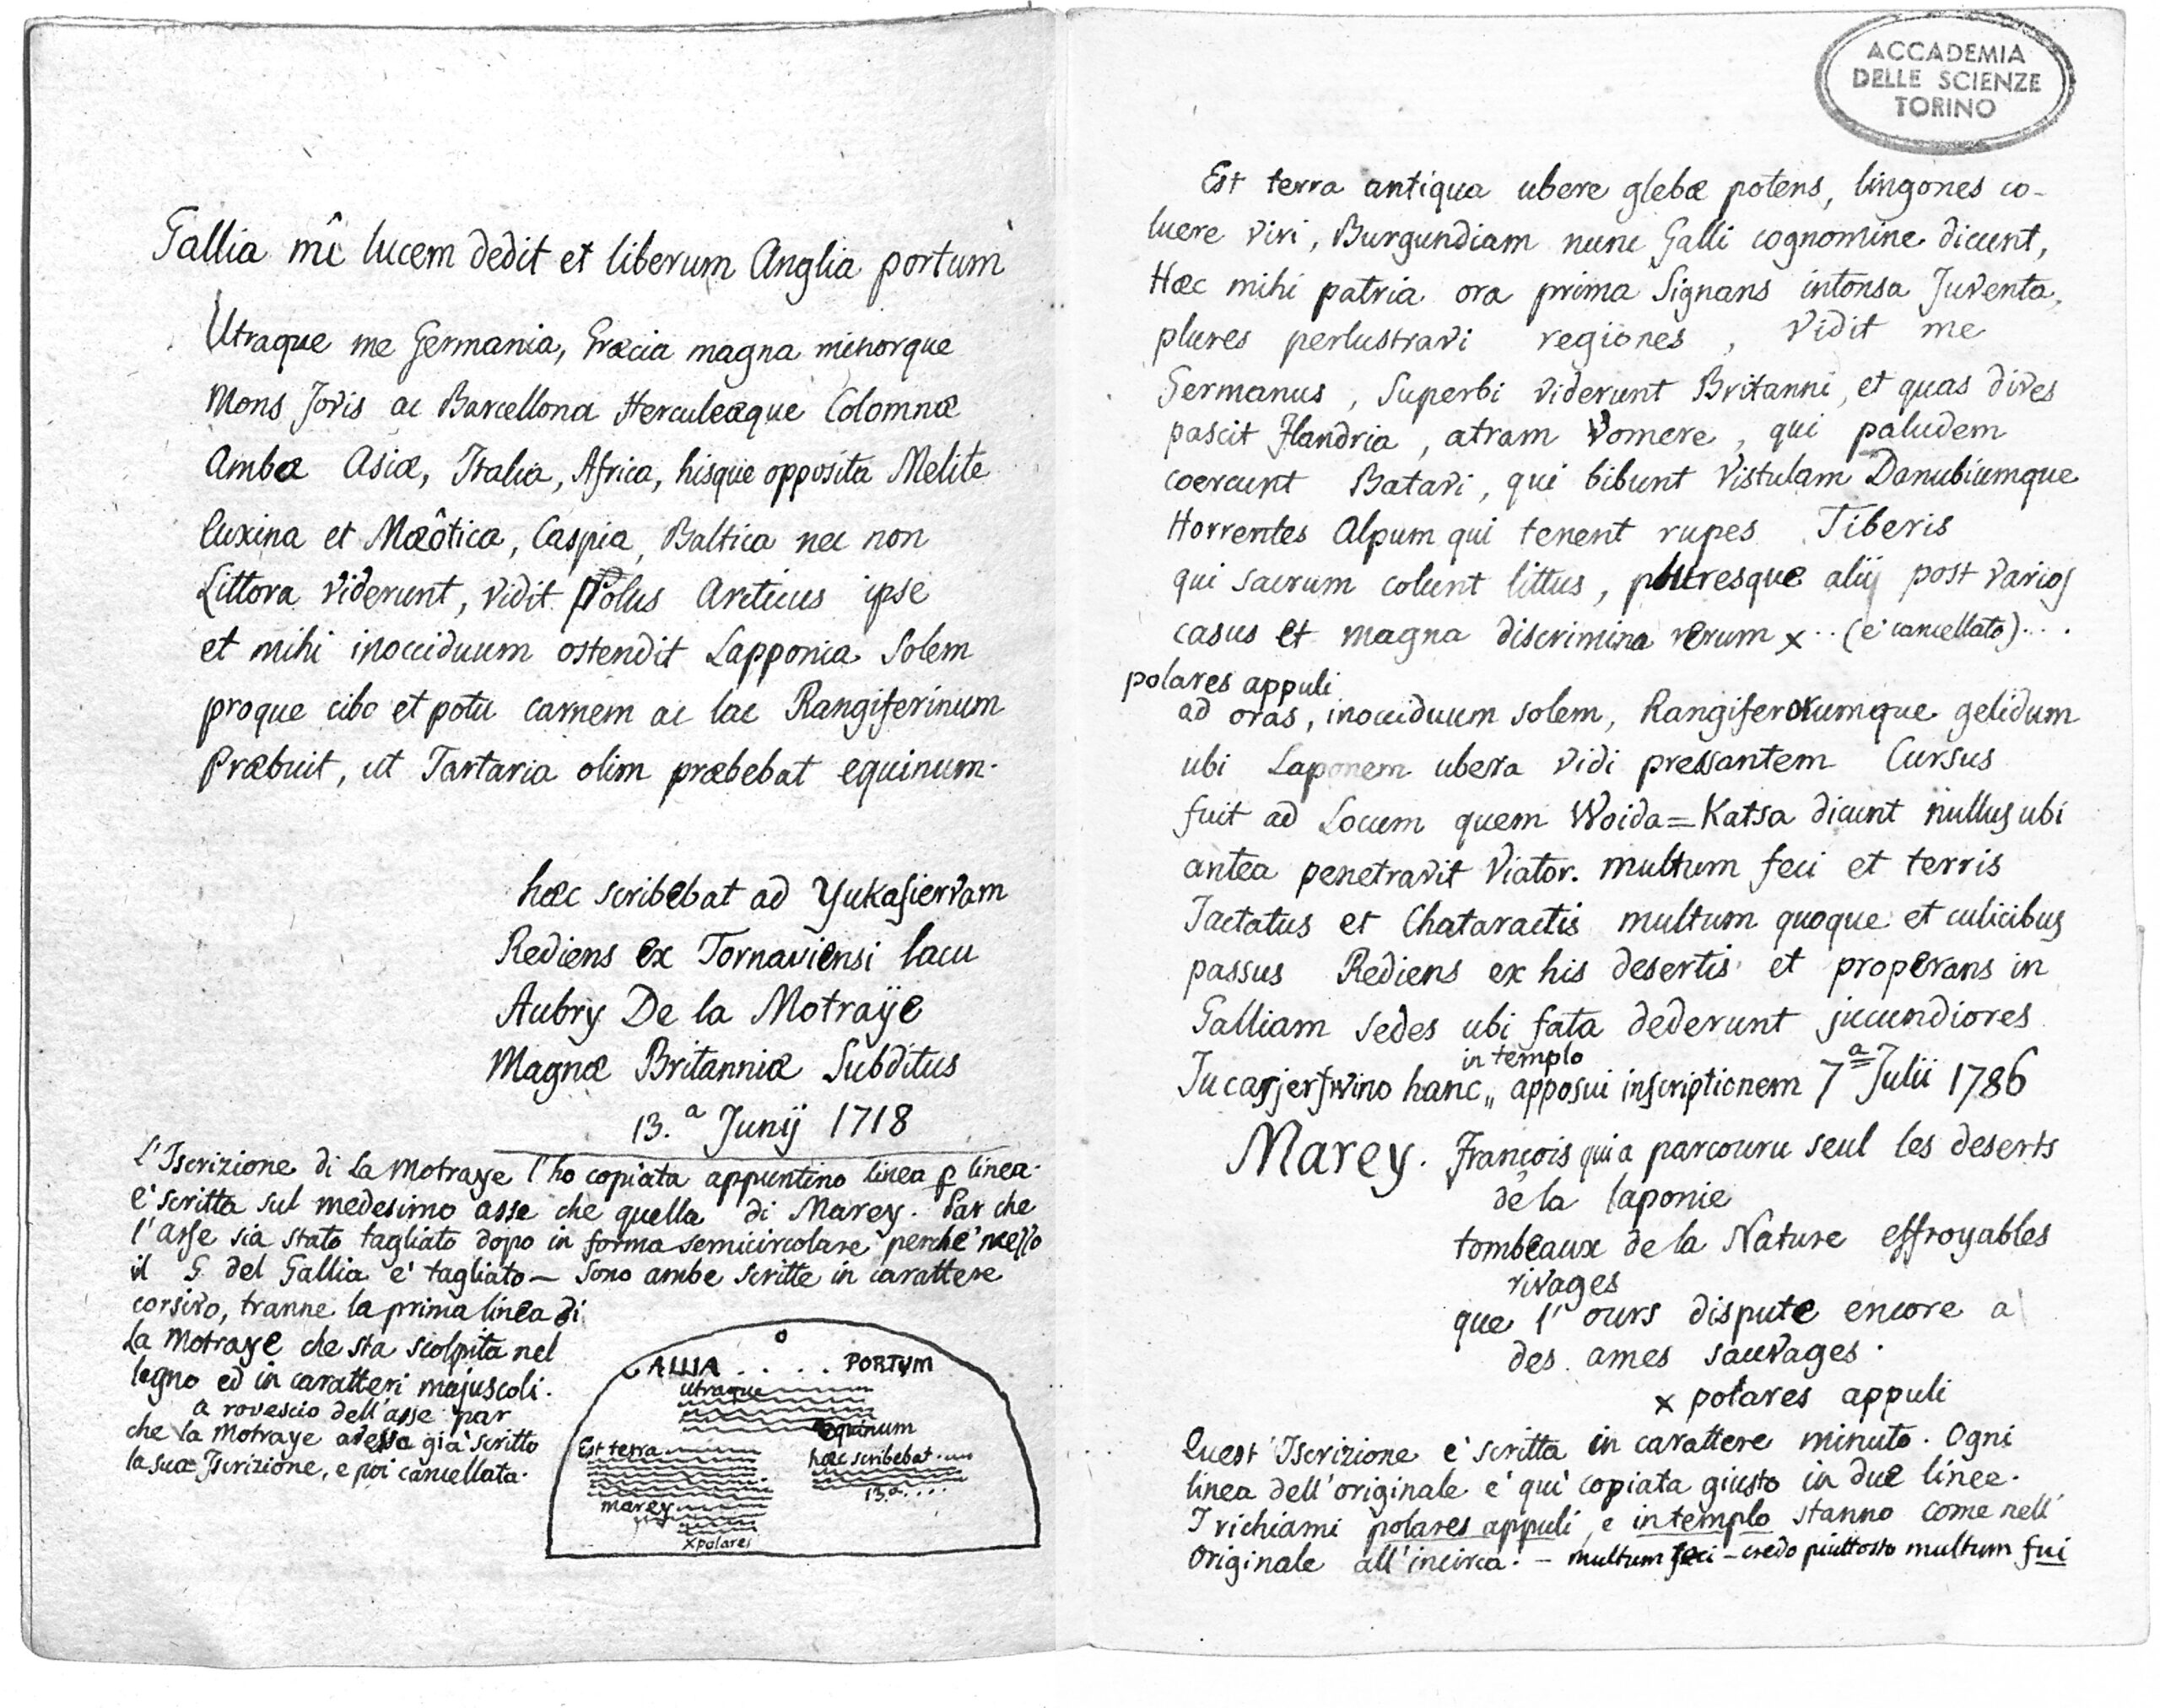 Gallia mî lucem dedit et liberum Anglia portum
Utraque me Germania, Græcia magna minorque
Mons Jovis ac Barcellona Herculeæque Colomnæ
Ambæ Asiæ, Italia, Africa, hisque opposita Melite
Euxina et Mæôtica, Caspia, Baltica nec non
Littora viderunt, vidit Polus Arcticus ipse
et mihi inocciduum ostendit Lapponia Solem
proque cibo et potu carnem ac lac Rangiferinum
Præbuit, ut Tartaria olim præbebat equinum.
hæc scribebat ad Yukasiervam
Rediens ex Tornaviensi lacu
Aubry De la Motraÿe
Magnæ Britanniæ Subditus
13.a Junij 1718
L'Iscrizione di La Motraye l'ho copiata appuntino linea p linea.
è scritta sul medesimo asse che quella di Marey. Par che
l'asse sia stato tagliato dopo in forma semicircolare perchè mezzo
il G del Gallia è tagliato — Sono ambe scritte in carattere
corsivo, tranne la prima linea di
La Motraye che sta scolpita nel
legno ed in caratteri majuscoli.
a rovescio dell'asse par
che la Motraye avesse già scritto
la sua Iscrizione, e poi cancellata.
ALLIA . . . . PORTVM
utraque
equinum
Est terra
hæc scribebat
13.a....
marey
x polares
ACCADEMIA
DELLE SCIENZE
TORINO
Est terra antiqua ubere glebæ potens, lingones co-
luere viri, Burgundiam nunc Galli cognomine dicunt,
Hæc mihi patria ora prima Signans intonsa Juventa,
plures perlustravi regiones, Vidit me
Germanus, Superbi viderunt Britanni, et quas dives
pascit Flandria, atram Vomere, qui paludem
coercunt Batavi, qui bibunt Vistulam Danubiumque
Horrentes Alpum qui tenent rupes Tiberis
qui sacrum colunt littus, pluresque alij post varios
casus et magna discrimina rerum x .. (è cancellato)....
polares appuli
ad oras, inocciduum solem, Rangiferorumque gelidum
ubi Laponem ubera vidi pressantem Cursus
fuit ad Locum quem Woida=Katsa dicunt nullus ubi
antea penetravit Viator. multum feci et terris
Jactatus et Chataractis multum quoque et culicibus
passus Rediens ex his desertis et properans in
Galliam sedes ubi fata dederunt jucundiores
in templo
Jucasjerfwino hanc „ apposui inscriptionem 7a Julii 1786
Marey. François qui a parcouru seul les deserts
de la laponie
tombeaux de la Nature effroyables
rivages
que l'ours dispute encore a
des ames sauvages.
x polares appuli
Quest'Iscrizione è scritta in carattere minuto. Ogni
linea dell'originale è quì copiata giusto in due linee.
I richiami polares appuli, e in templo stanno come nell'
originale all'incirca. — multum feci — credo piuttosto multum fui